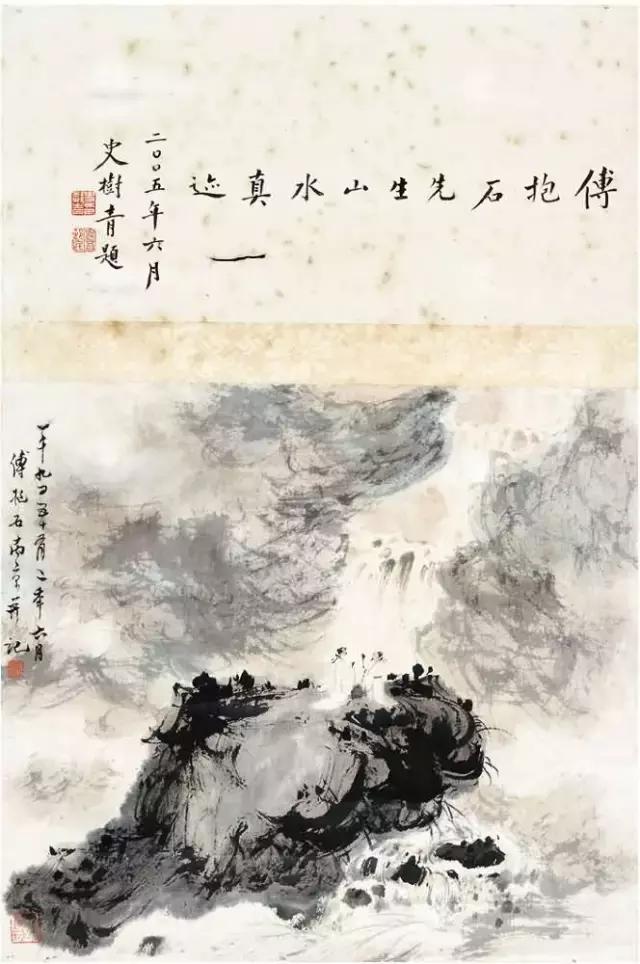 傅抱石先生山水真迹
二〇〇五年六月
史樹青題
一千九百五十有二年六月
傅抱石南京并記